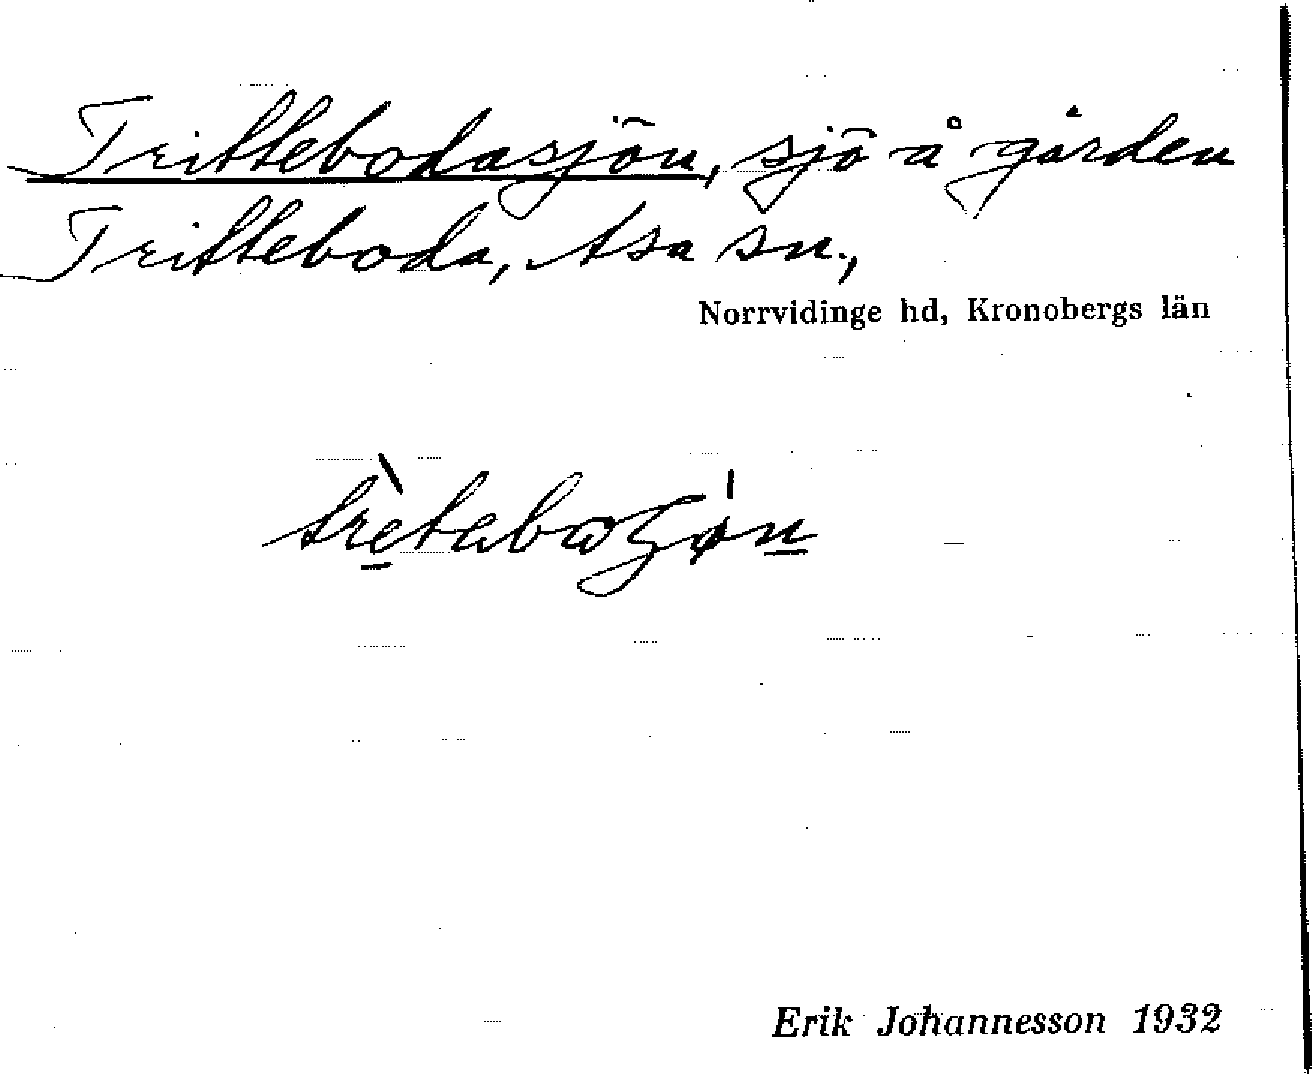 Trittebodasjön, sjö å gården
Tritteboda, Asa sn.,
Norrvidinge hd, Kronobergs län
Erik Johannesson 1932